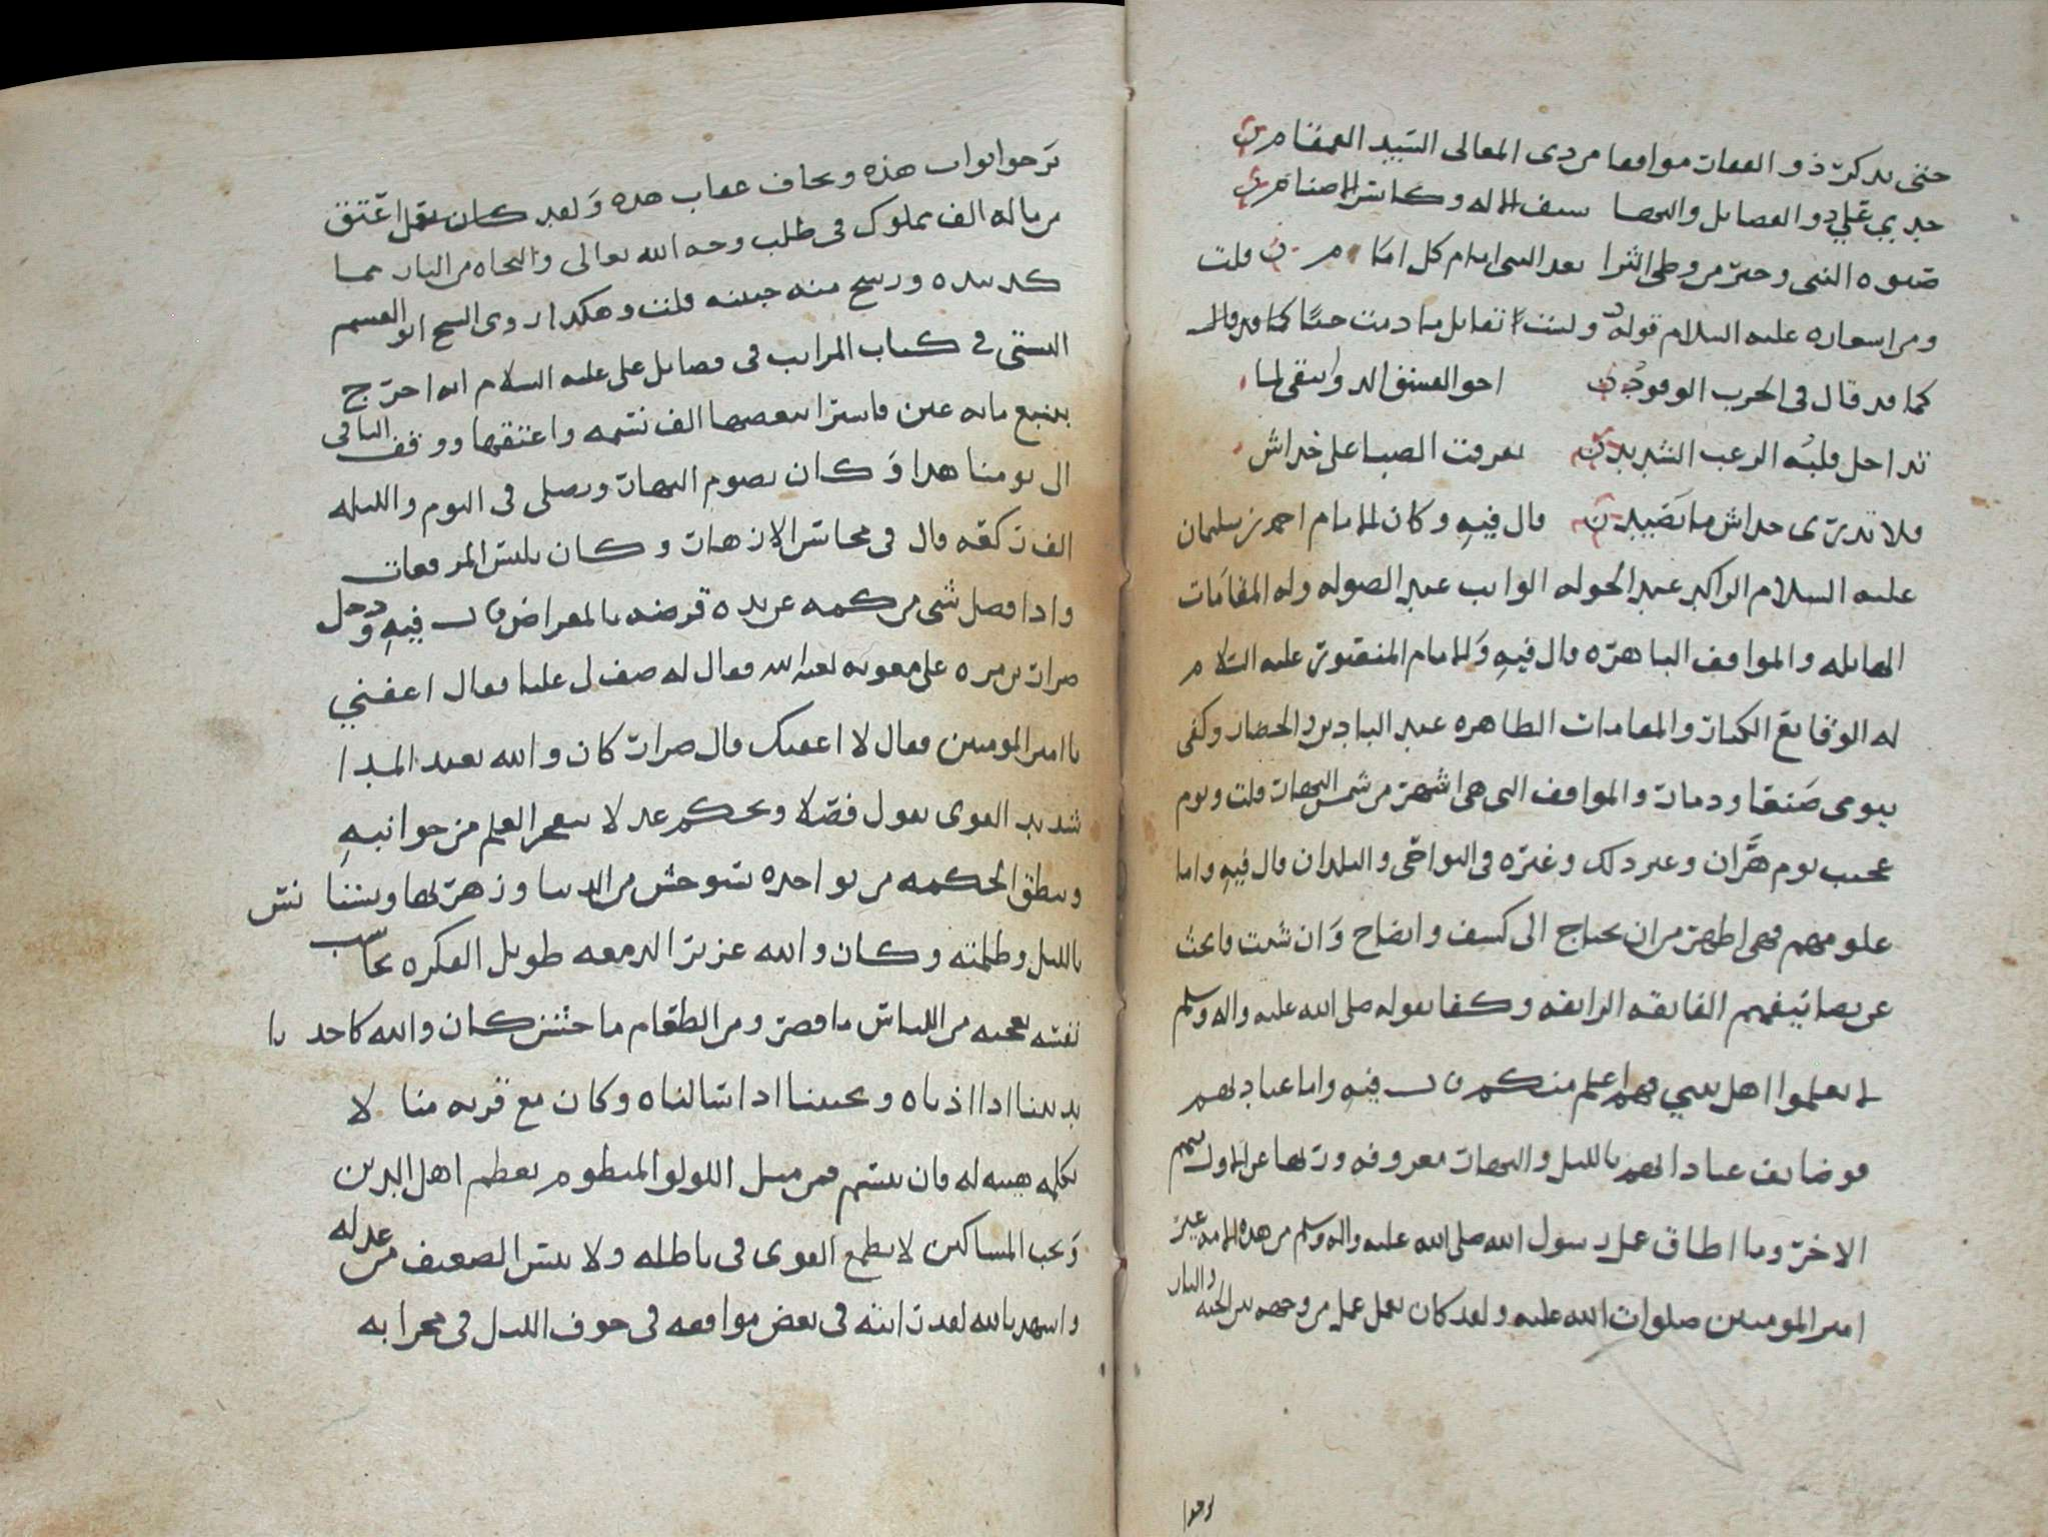 حتى يذكر ذو الفقار مواقفا من ذى المعالى السيد القمقام
جدي علي ذو الفضايل والنهى سيف الاله وكاسر الاصنام
صنوه النبى وخير من وطى الثرا بعد النبى امام كل امام قلت
ومن اشعاره عليه السلام قوله ولست اقاتل ما دمت حيا كما قد قال
كما قد قال فى الحرب الوقود اخو الفسق الدوانيقى لما
تداخل قلبه الرعب الشديد تفرقت الضبا على خداش
فلا تدرى خداش ما تصيد قال فيه وكان للامام احمد بن سليمان
عليه السلام الراكد عند الجوله الواثب عند الصوله وله المقامات
الهايله والمواقف الباهره قال فيه وللامام المنصور عليه السلام
له الوقايع الكبار والمقامات الطاهره عند البادين والحضار وكفى
بيومى صنعا وذمار والمواقف التى هى اشهر من شمس النهار قلت ويوم
عجيب يوم هران وغير ذلك وغيره فى النواحى والبلدان قال فيه واما
علومهم فهى اظهر من ان يحتاج الى كشف وايضاح وان شئت فابحث
عن تصانيفهم الفايقه الرايقه وكفا بقوله صلى الله عليه واله وسلم
لا تعلموا اهل بيتي فهم اعلم منكم قال فيه واما عبادتهم
فوضايف عباداتهم بالليل والنهار معروفه ورثها عن الاول منهم
الاخر وما اطاق عمل رسول الله صلى الله عليه واله وسلم من هذه الامه غير
امير المومنين صلوات الله عليه ولقد كان يعمل عمل من وجهه بين الجنه والنار
يرجوا
يرجوا ثواب هذه ويخاف عقاب هذه ولقد كان يعمل اعتق
من ماله الف مملوك فى طلب وجه الله تعالى والنجاه من النار مما
كد بيده ورشح منه جبينه قلت وهكذا روى الشيخ ابو القسم
البستى فى كتاب المراتب فى فضايل على عليه السلام انه اخرج
بينبع مايه عين فاشترا ببعضها الف نسمه واعتقها ووقف الباقى
الى يومنا هذا وكان يصوم النهار ويصلى فى اليوم والليله
الف ركعه قال فى محاسن الازهار وكان يلبس المرقعات
واذا فضل شى من كمه عن يده قرضه بالمقراض قال فيه ودخل
ضرار بن مره على معويه لعنه الله فقال له صف لى عليا فقال اعفني
يا امير المومنين فقال لا اعفيك قال ضرار كان والله بعيد المدا
شديد القوى يقول فصلا ويحكم عدلا يتفجر العلم من جوانبه
وينطق الحكمه من نواحيه يستوحش من الدنيا وزهرتها ويستانس
بالليل وظلمته وكان والله غزير الدمعه طويل الفكره يحاسب
نفسه يعجبه من اللباس ما قصر ومن الطعام ما خشن كان والله كاحدنا
يدنينا اذا اتيناه ويجيبنا اذا سالناه وكان مع قربه منا لا
نكلمه هيبه له فان تبسم فعن مثل اللولو المنظوم يعظم اهل الدين
ويحب المساكين لا يطمع القوى فى باطله ولا ييس الضعيف من عدله
واشهد بالله لقد رايته فى بعض مواقفه فى جوف الليل فى محرابه